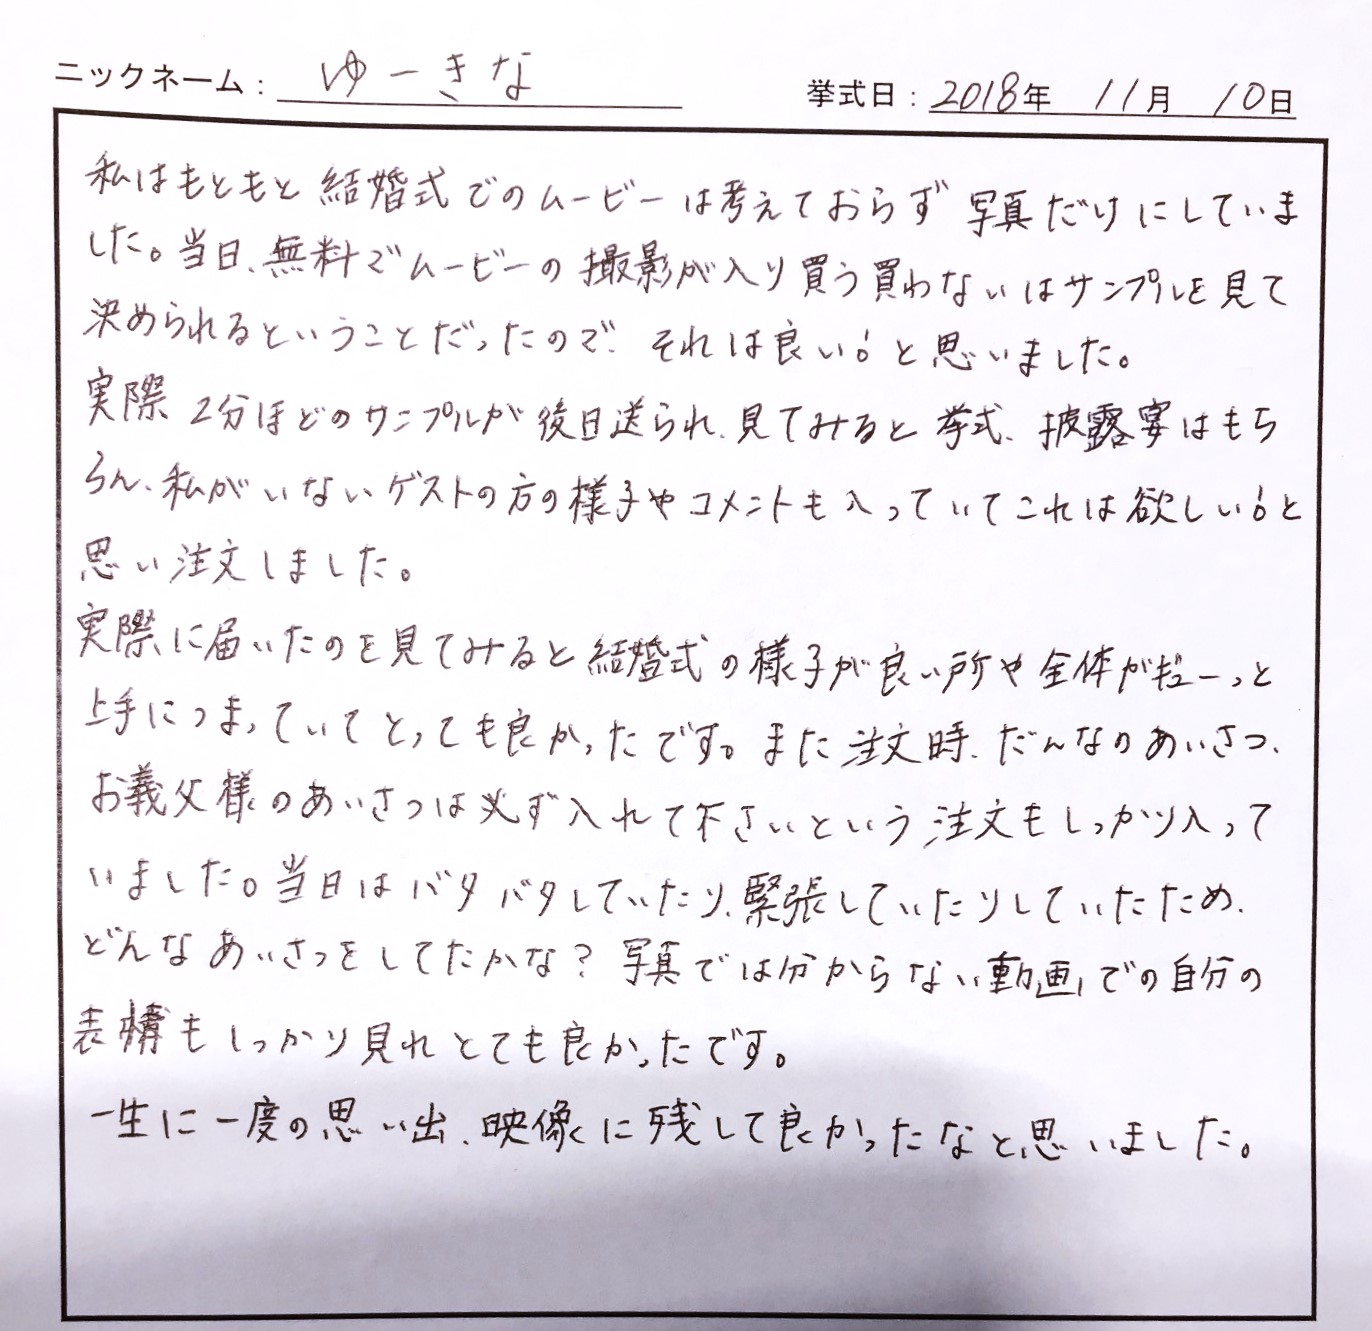 ニックネーム： ゆーきな 挙式日：2018年 11月 10日
私はもともと結婚式でのムービーは考えておらず写真だけにしていま
した。当日、無料でムービーの撮影が入り買う買わないはサンプルを見て
決められるということだったので、それは良い！と思いました。
実際 2分ほどのサンプルが後日送られ、見てみると挙式、披露宴はもち
ろん、私がいないゲストの方の様子やコメントも入っていてこれは欲しい！と
思い注文しました。
実際に届いたのを見てみると結婚式の様子が良い所や全体がギューっと
上手につまっていてとっても良かったです。また注文時、だんなのあいさつ、
お義父様のあいさつは必ず入れて下さいという注文もしっかり入って
いました。当日はバタバタしていたり、緊張していたりしていたため、
どんなあいさつをしてたかな？写真では分からない動画での自分の
表構もしっかり見れとても良かったです。
一生に一度の思い出、映像に残して良かったなと思いました。